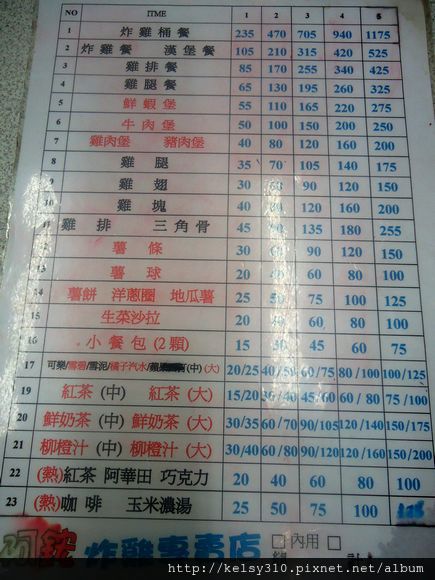 NO ITIME 1 2 3 4 5
1 炸雞桶餐 235 470 705 940 1175
2 炸雞餐 漢堡餐 105 210 315 420 525
3 雞排餐 85 170 255 340 425
4 雞腿餐 65 130 195 260 325
5 鮮蝦堡 55 110 165 220 275
6 牛肉堡 50 100 150 200 250
7 雞肉堡 豬肉堡 40 80 120 160 200
8 雞腿 35 70 105 140 175
9 雞翅 30 60 90 120 150
10 雞塊 40 80 120 160 200
11 雞排 三角骨 45 90 135 180 255
薯條 30 60 90 120 150
13 薯球 20 40 60 80 100
14 薯餅 洋蔥圈 地瓜薯 25 50 75 100 125
15 生菜沙拉 20 40 60 80 100
16 小餐包(2顆) 15 30 45 60 75
17 可樂/雪碧/雪泥/橘子汽水/蘋果 (中)(大) 20/25 40/50 60/75 80/100 100/125
19 紅茶(中) 紅茶(大) 15/20 30/40 45/60 60/80 75/100
20 鮮奶茶(中) 鮮奶茶(大) 30/35 60/70 90/105 120/140 150/175
21 柳橙汁(中) 柳橙汁(大) 30/40 60/80 90/120 120/160 150/200
22 (熱)紅茶 阿華田 巧克力 20 40 60 80 100
23 (熱)咖啡 玉米濃湯 25 50 75 100
炸雞專賣店 內用
http://kelsy310.pixnet.net/album